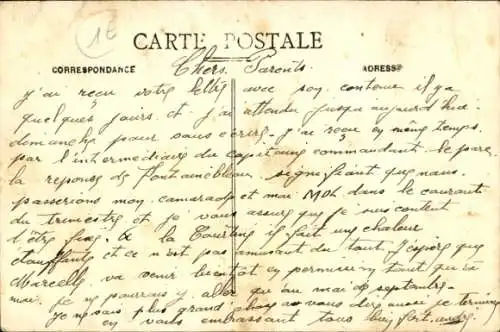 1E
CARTE POSTALE
CORRESPONDANCE
ADRESSE
Chers Parents
j'ai reçu votre lettre avec son contenu il y a
quelques jours et j'ai attendu jusqu'aujourd'hui
dimanche pour vous écrire. j'ai reçu en même temps
par l'intermédiaire du capitaine commandant le parc
la reponse de Fontainebleau signifiant que nous
passerions mon camarade et moi dans le courant
du trimestre et je vous assure que je suis content
d'être fixé. A la Courtine il fait une chaleur
étouffante et ce n'est pas amusant du tout. J'espère que
Marcelle va venir bientôt en permission tant qu'à
moi je ne pourrais y aller que au mois de septembre.
je ne sais plus grand chose à vous dire aussi je termine
en vous embrassant tous bien fort. André